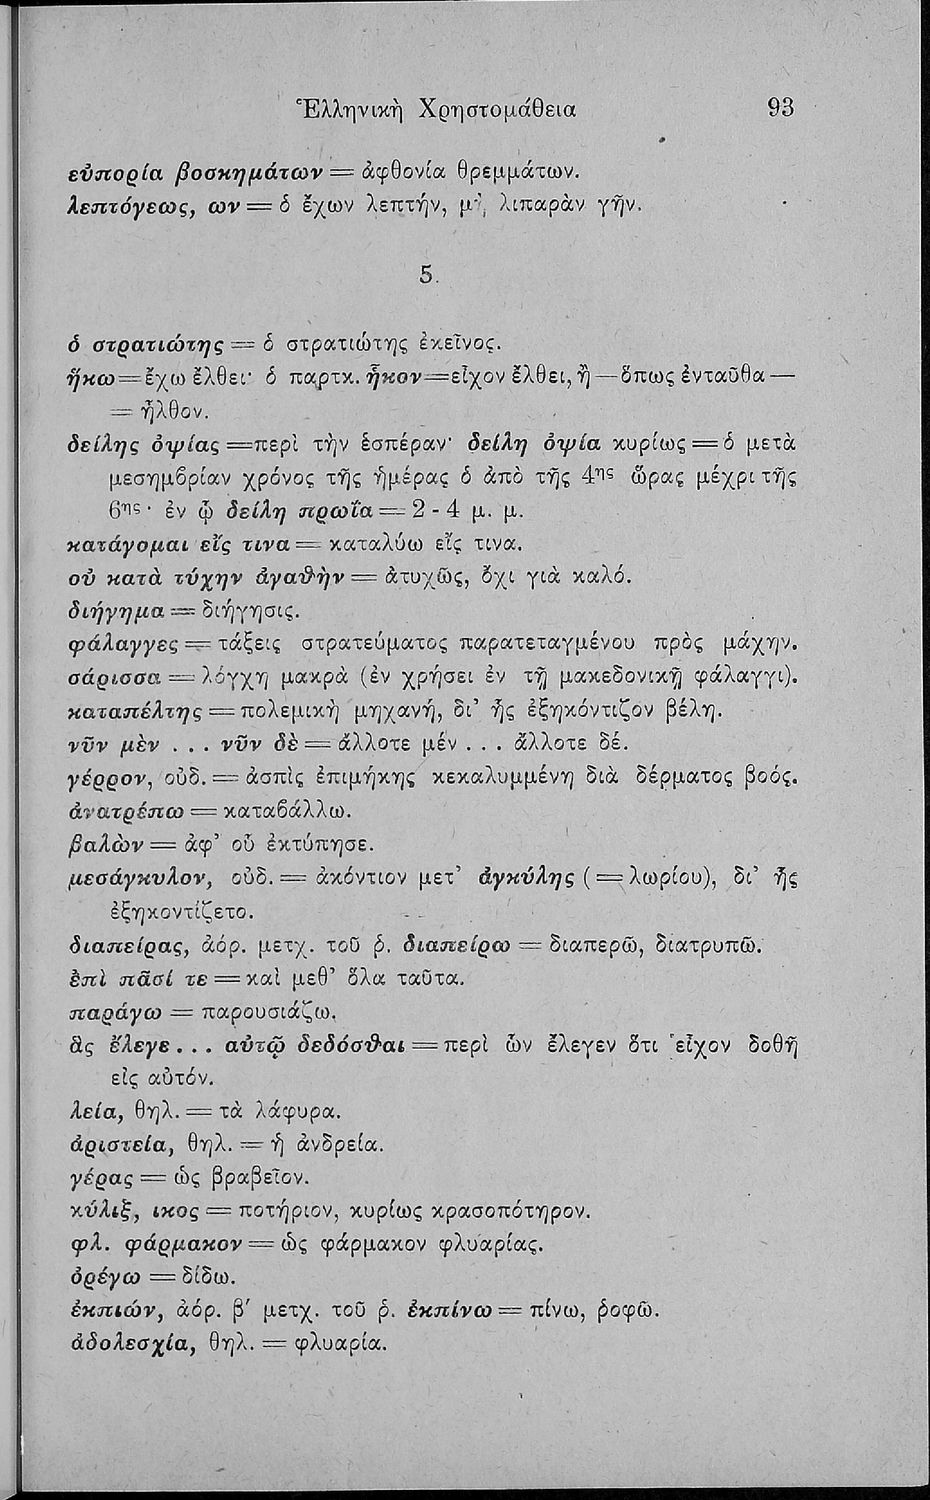 Ἑλληνικὴ Χρηστομάθεια 93
εὐπορία βοσκημάτων = ἀφθονία θρεμμάτων.
λεπτόγεως, ων = ὁ ἔχων λεπτήν, μὴ, λιπαρὰν γῆν.
5.
ὁ στρατιώτης = ὁ στρατιώτης ἐκεῖνος.
ἥκω = ἔχω ἔλθει· ὁ παρτκ. ἧκον = εἶχον ἔλθει, ἢ — ὅπως ἐνταῦθα —
= ἦλθον.
δείλης ὀψίας = περὶ τὴν ἑσπέραν· δείλη ὀψία κυρίως = ὁ μετὰ
μεσημβρίαν χρόνος τῆς ἡμέρας ὁ ἀπὸ τῆς 4ης ὥρας μέχρι τῆς
6ης· ἐν ᾧ δείλη πρωΐα = 2 - 4 μ. μ.
κατάγομαι εἴς τινα = καταλύω εἴς τινα.
οὐ κατὰ τύχην ἀγαθὴν = ἀτυχῶς, ὄχι γιὰ καλό.
διήγημα = διήγησις.
φάλαγγες = τάξεις στρατεύματος παρατεταγμένου πρὸς μάχην.
σάρισσα = λόγχη μακρὰ (ἐν χρήσει ἐν τῇ μακεδονικῇ φάλαγγι).
καταπέλτης = πολεμικὴ μηχανή, δι’ ἧς ἐξηκόντιζον βέλη.
νῦν μὲν . . . νῦν δὲ = ἄλλοτε μέν . . . ἄλλοτε δέ.
γέρρον, οὐδ. = ἀσπὶς ἐπιμήκης κεκαλυμμένη διὰ δέρματος βοός.
ἀνατρέπω = καταβάλλω.
βαλὼν = ἀφ’ οὗ ἐκτύπησε.
μεσάγκυλον, οὐδ. = ἀκόντιον μετ’ ἀγκύλης (= λωρίου), δι’ ἧς
ἐξηκοντίζετο.
διαπείρας, ἀόρ. μετχ. τοῦ ῥ. διαπείρω = διαπερῶ, διατρυπῶ.
ἐπὶ πᾶσί τε = καὶ μεθ’ ὅλα ταῦτα.
παράγω = παρουσιάζω.
ἃς ἔλεγε . . . αὐτῷ δεδόσθαι = περὶ ὧν ἔλεγεν ὅτι εἶχον δοθῆ
εἰς αὐτόν.
λεία, θηλ. = τὰ λάφυρα.
ἀριστεία, θηλ. = ἡ ἀνδρεία.
γέρας = ὡς βραβεῖον.
κύλιξ, ικος = ποτήριον, κυρίως κρασοπότηρον.
φλ. φάρμακον = ὡς φάρμακον φλυαρίας.
ὀρέγω = δίδω.
ἐκπιών, ἀόρ. β΄ μετχ. τοῦ ῥ. ἐκπίνω = πίνω, ῥοφῶ.
ἀδολεσχία, θηλ. = φλυαρία.